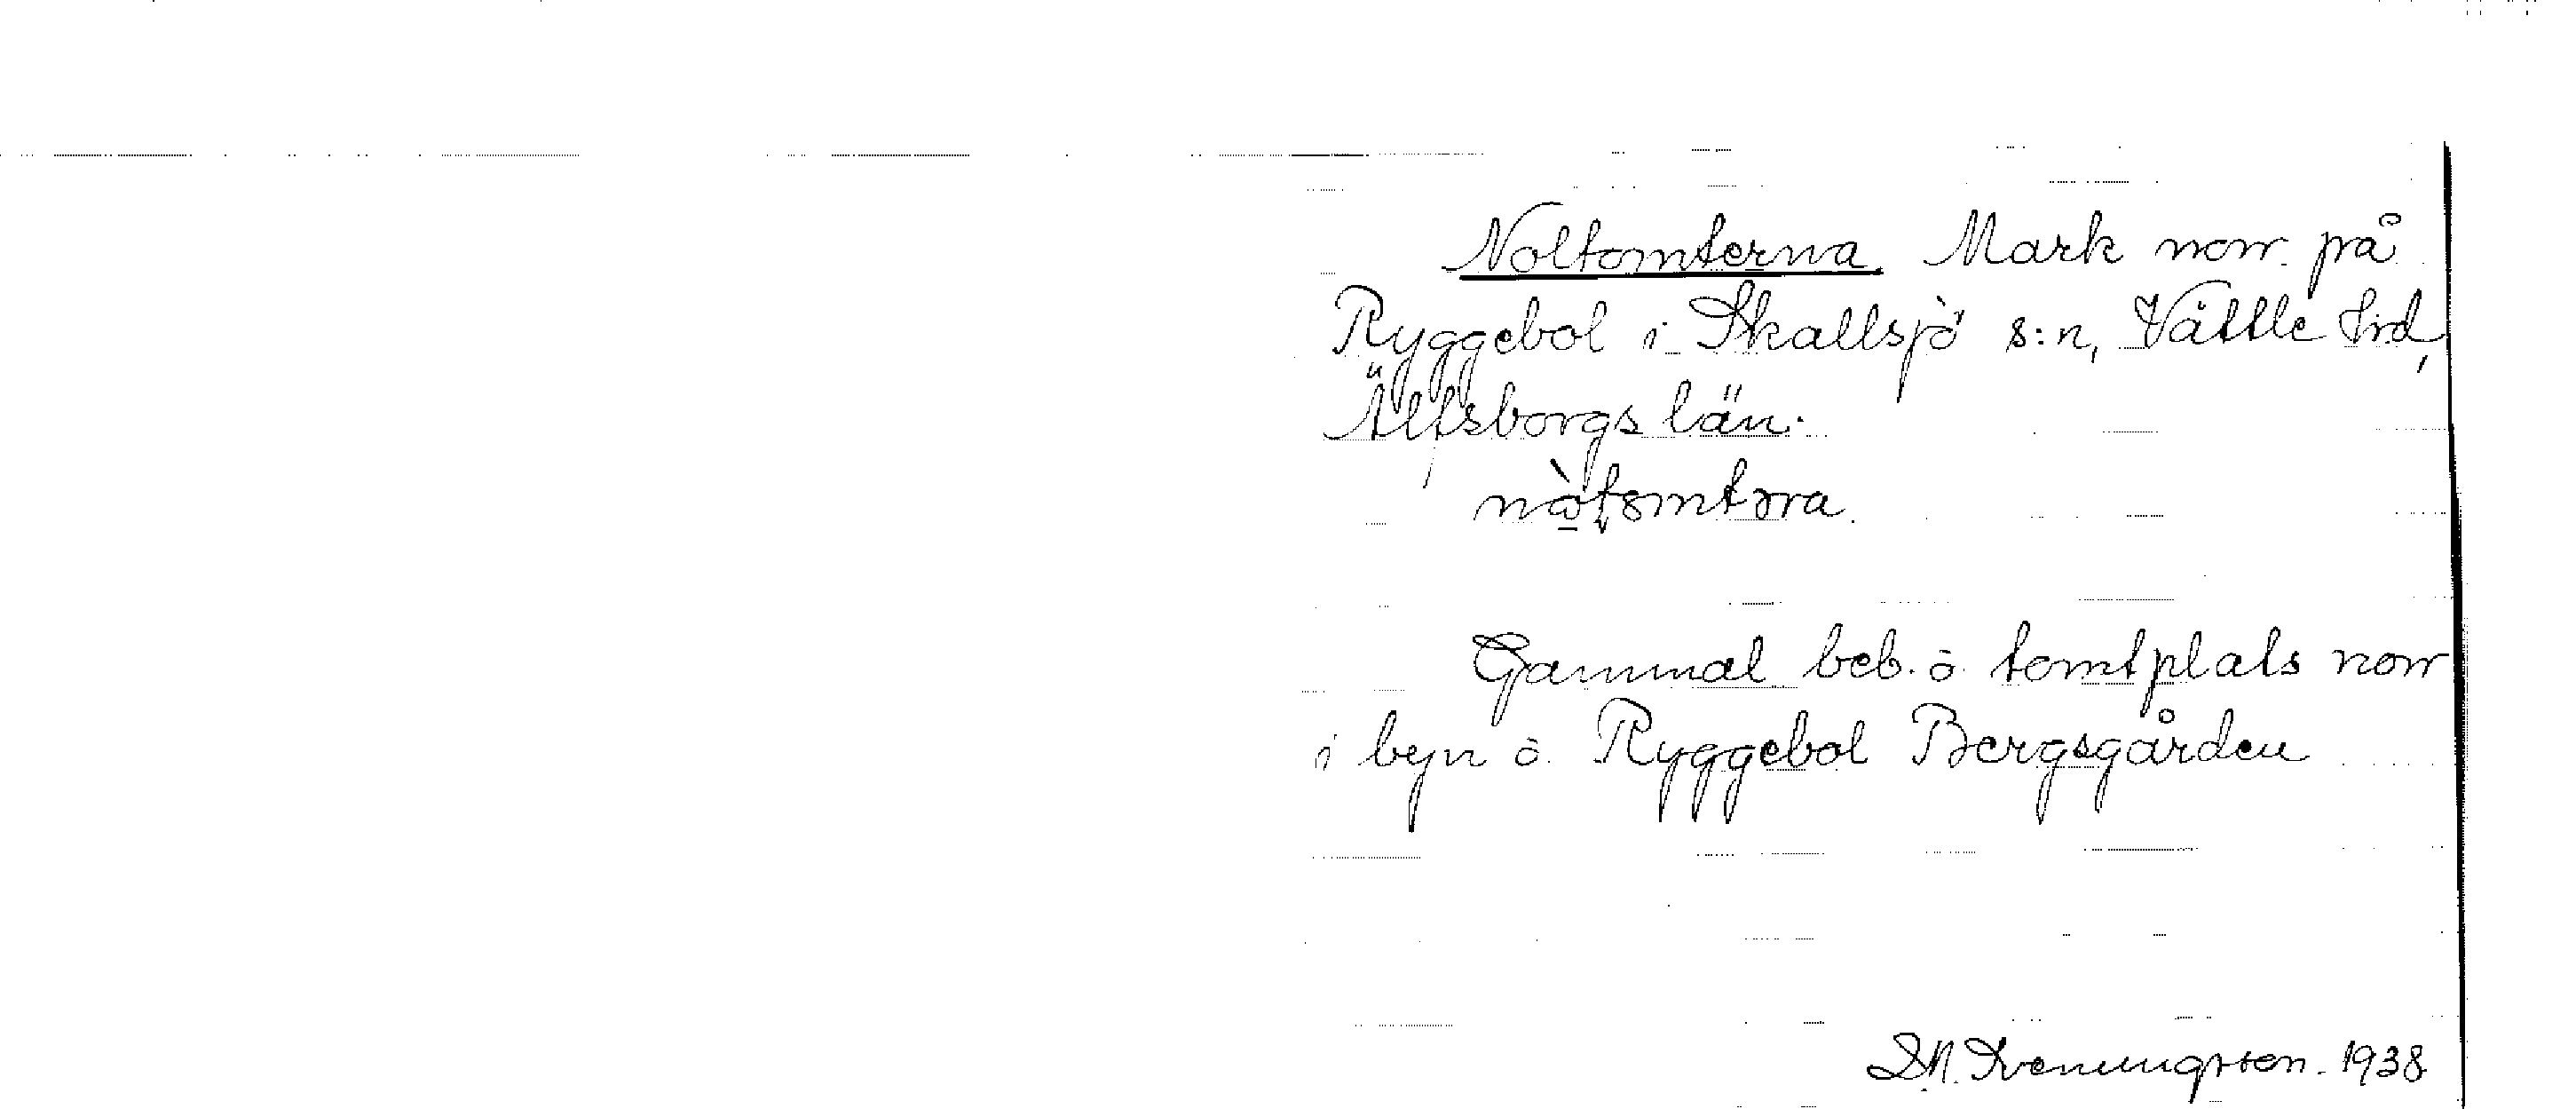 Noltomterna. Mark norr på
Ryggebol i Skallsjö s:n, Vättle hrd,
Älfsborgs län.
Gammal beb. o. tomtplats norr
i byn o. Ryggebol Bergsgården
1938